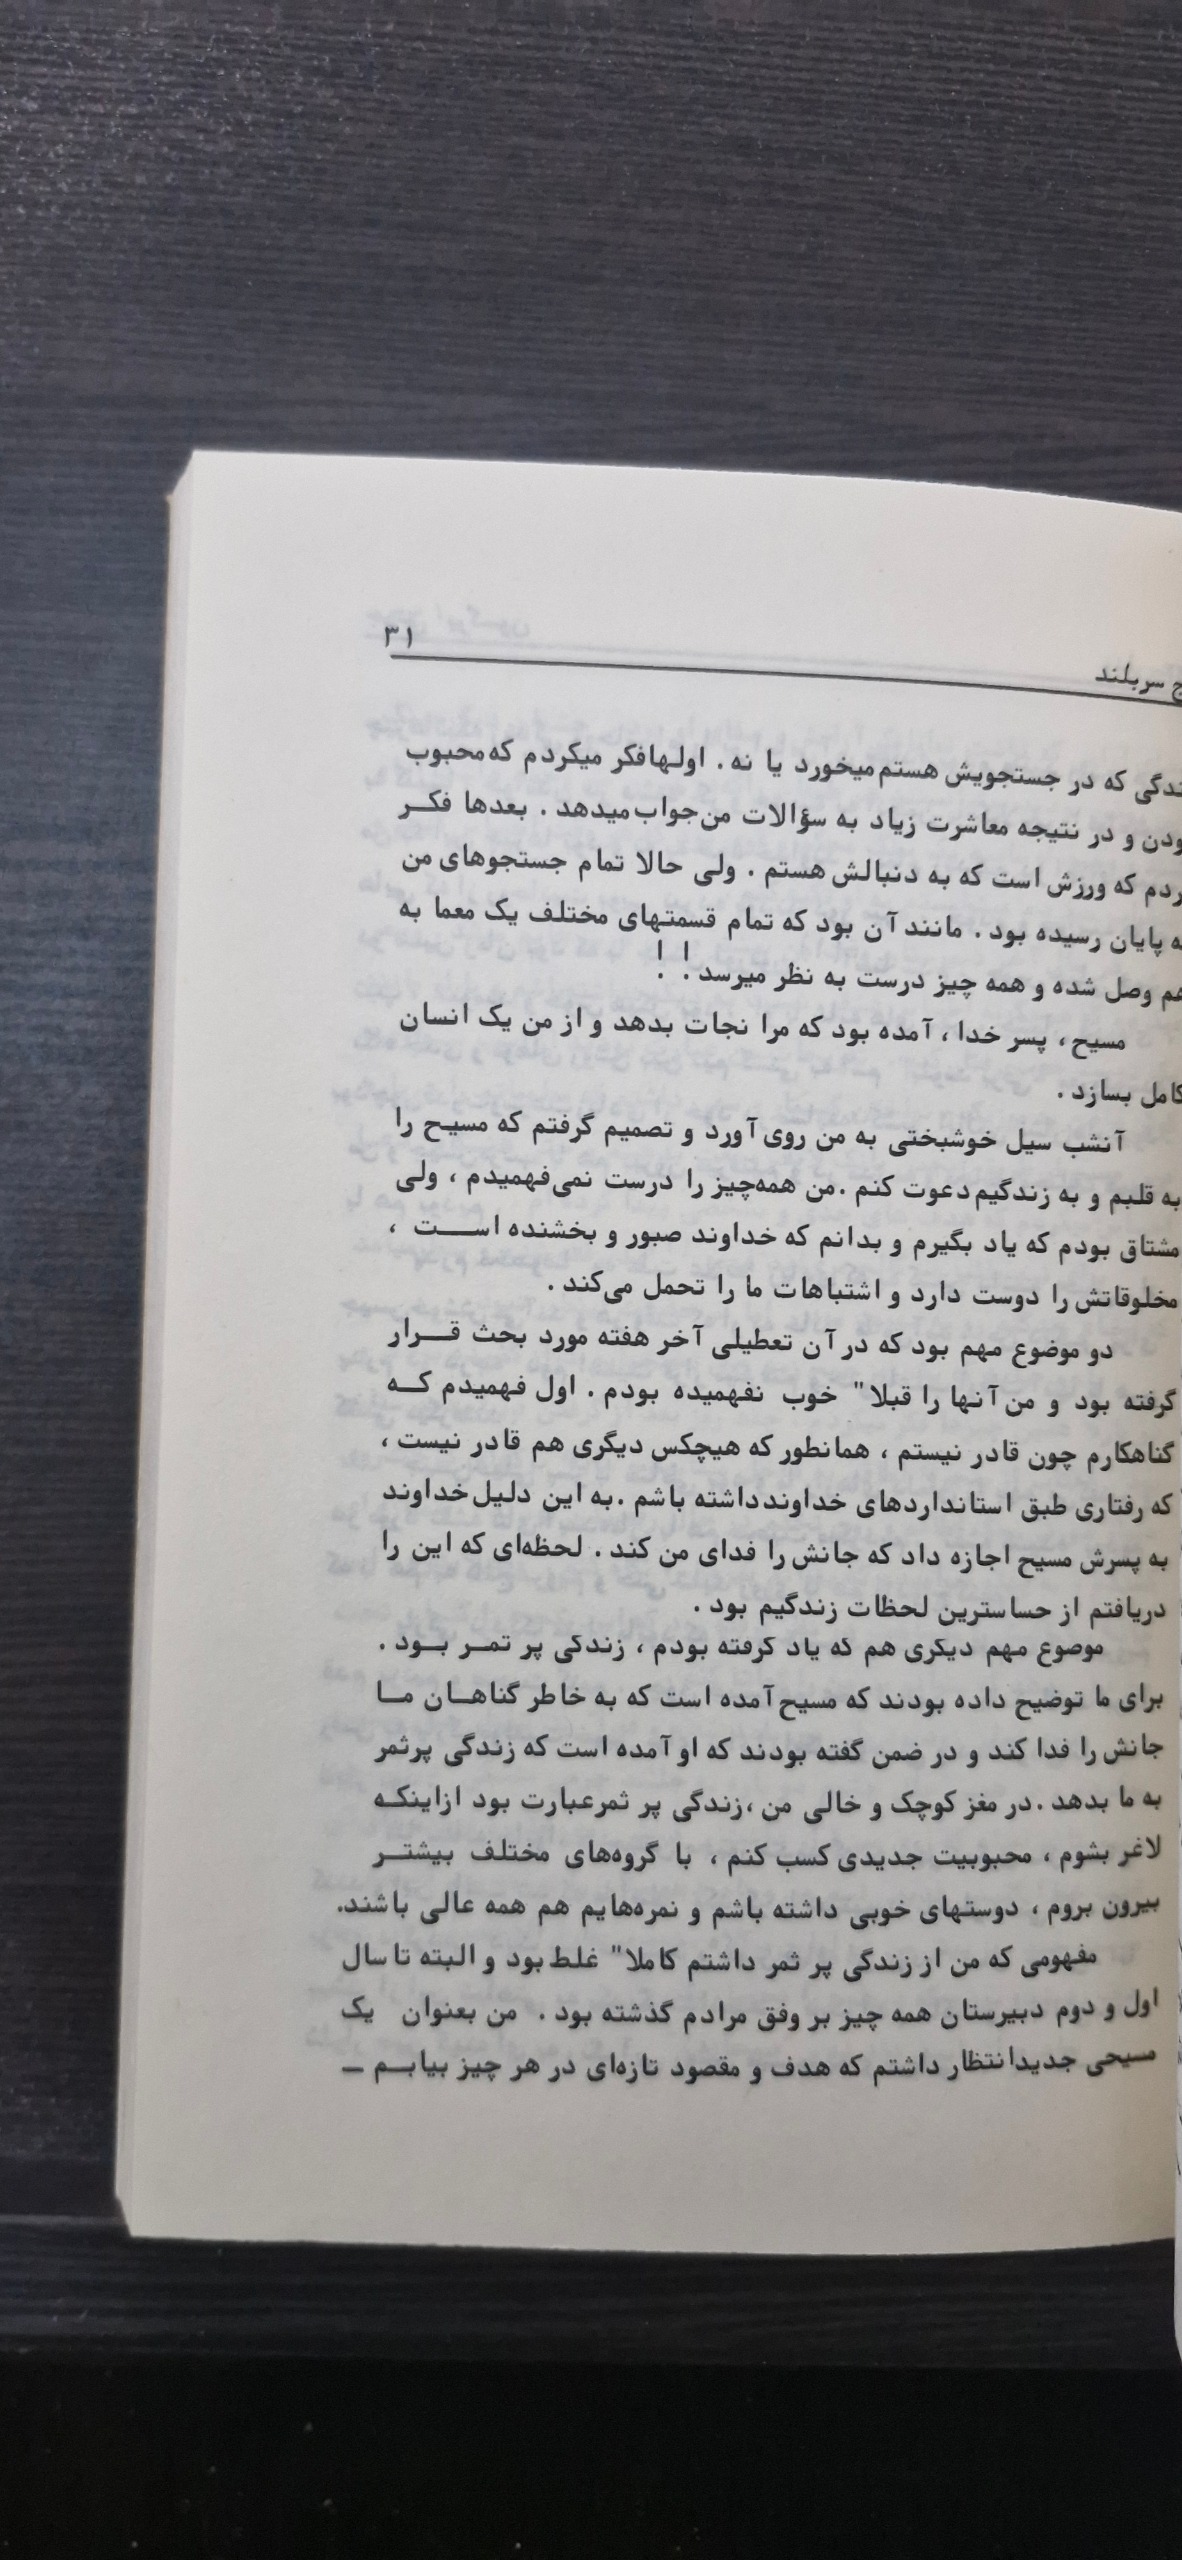 ۳۱
سربلند
که در جستجویش هستم میخورد یا نه . اولها فکر میکردم که محبوب
و در نتیجه معاشرت زیاد به سؤالات من جواب میدهد . بعدها فکــر
که ورزش است که به دنبالش هستم . ولی حالا تمام جستجوهای من
پایان رسیده بود . مانند آن بود که تمام قسمتهای مختلف یک معما به
هم وصل شده و همه چیز درست به نظر میرسد ! !
مسیح ، پسر خدا ، آمده بود که مرا نجات بدهد و از من یک انسان
کامل بسازد .
آنشب سیل خوشبختی به من روی آورد و تصمیم گرفتم که مسیـح را
به قلبم و به زندگیم دعوت کنم .من همه‌چیز را درست نمی‌فهمیدم ، ولی
مشتاق بودم که یاد بگیرم و بدانم که خداوند صبور و بخشنده اســـت ،
مخلوقاتش را دوست دارد و اشتباهات ما را تحمل می‌کند .
دو موضوع مهم بود که در آن تعطیلی آخر هفته مورد بحث قــرار
گرفته بود و من آنها را قبلا" خوب نفهمیده بودم . اول فهمیدم کــه
گناهکارم چون قادر نیستم ، همانطور که هیچکس دیگری هم قادر نیست ،
که رفتاری طبق استانداردهای خداوند داشته باشم .به این دلیل خداوند
به پسرش مسیح اجازه داد که جانش را فدای من کند . لحظه‌ای که این را
دریافتم از حساسترین لحظات زندگیم بود .
موضوع مهم دیگری هم که یاد گرفته بودم ، زندگی پر ثمــر بــود .
برای ما توضیح داده بودند که مسیح آمده است که به خاطر گناهــان مــا
جانش را فدا کند و در ضمن گفته بودند که او آمده است که زندگی پرثمر
به ما بدهد .در مغز کوچک و خالی من ،زندگی پر ثمر عبارت بود ازاینکـه
لاغر بشوم ، محبوبیت جدیدی کسب کنم ، با گروه‌های مختلف بیشتــر
بیرون بروم ، دوستهای خوبی داشته باشم و نمره‌هایم هم همه عالی باشند.
مفهومی که من از زندگی پر ثمر داشتم کاملا" غلط بود و البته تا سال
اول و دوم دبیرستان همه چیز بر وفق مرادم گذشته بود . من بعنوان یک
مسیحی جدید انتظار داشتم که هدف و مقصود تازه‌ای در هر چیز بیابــم ــ